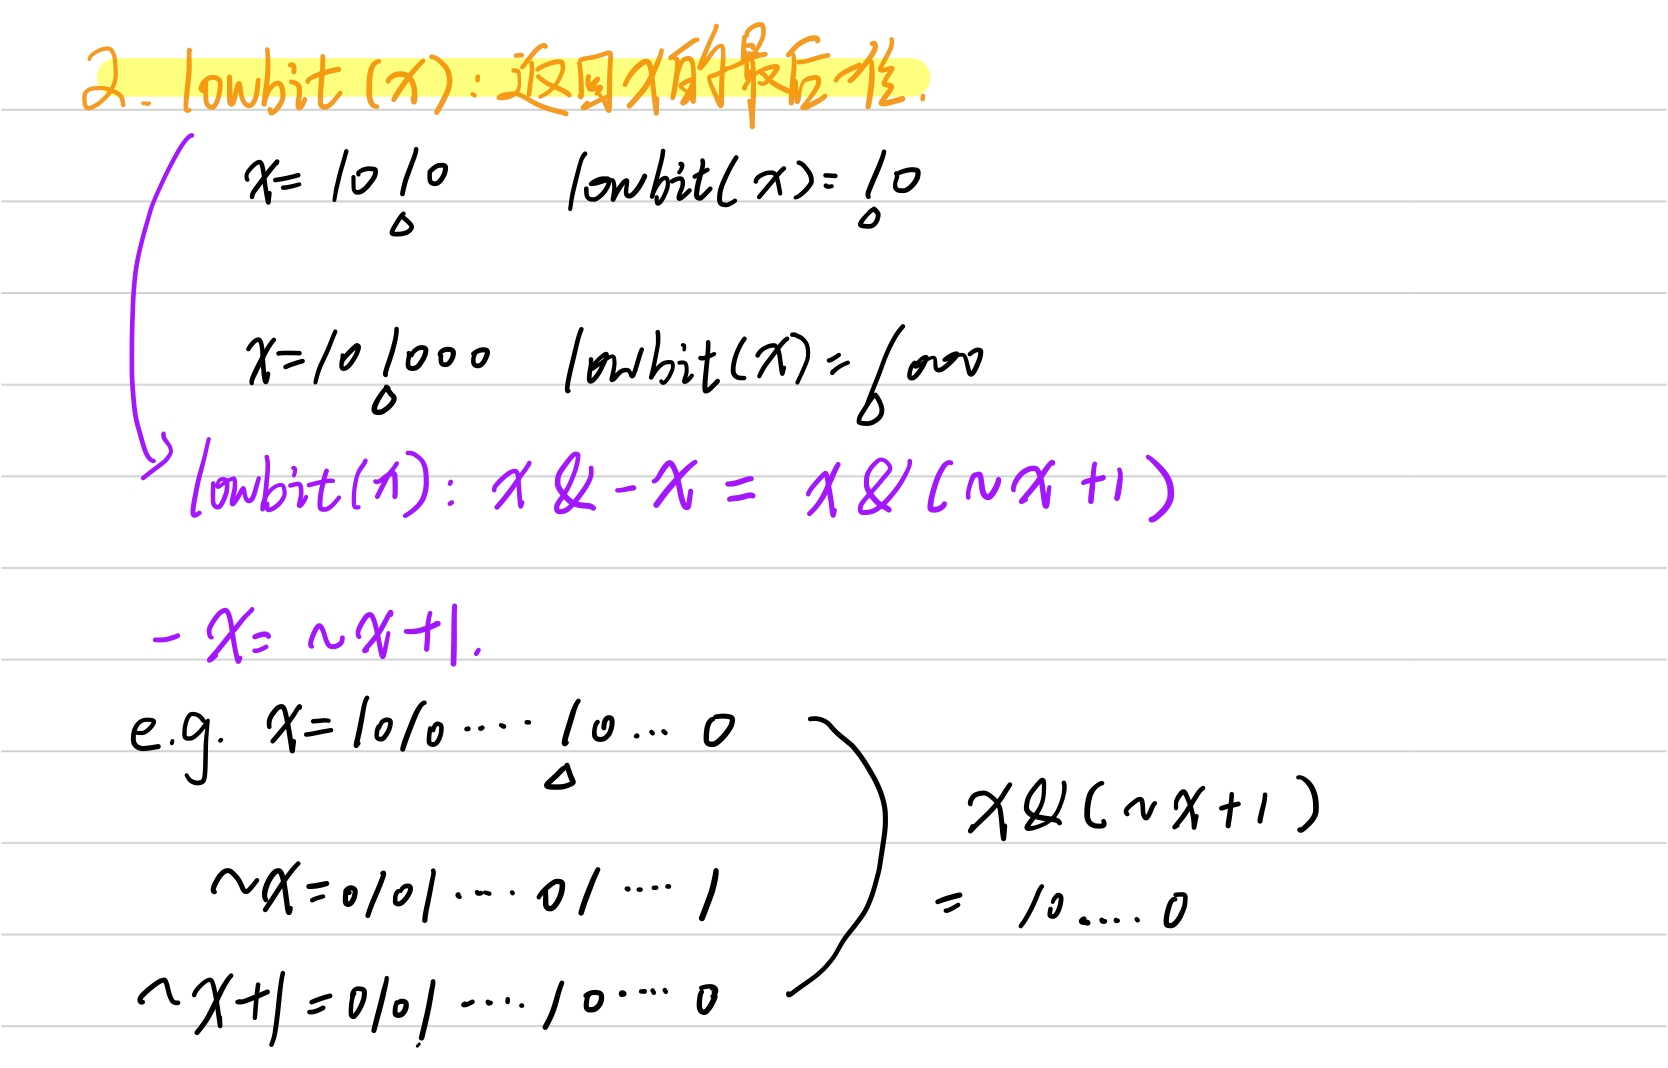 2. lowbit(x): 返回x的最后一位.
x= 1010 lowbit(x)= 10
x=101000 lowbit(x)= 1000
lowbit(x): x & -x = x & (~x+1)
-x= ~x+1.
e.g. x=1010····10··· 0
~x=0101····01···· 1
x&(~x+1)
= 10.... 0
~x+1=0101····10···· 0